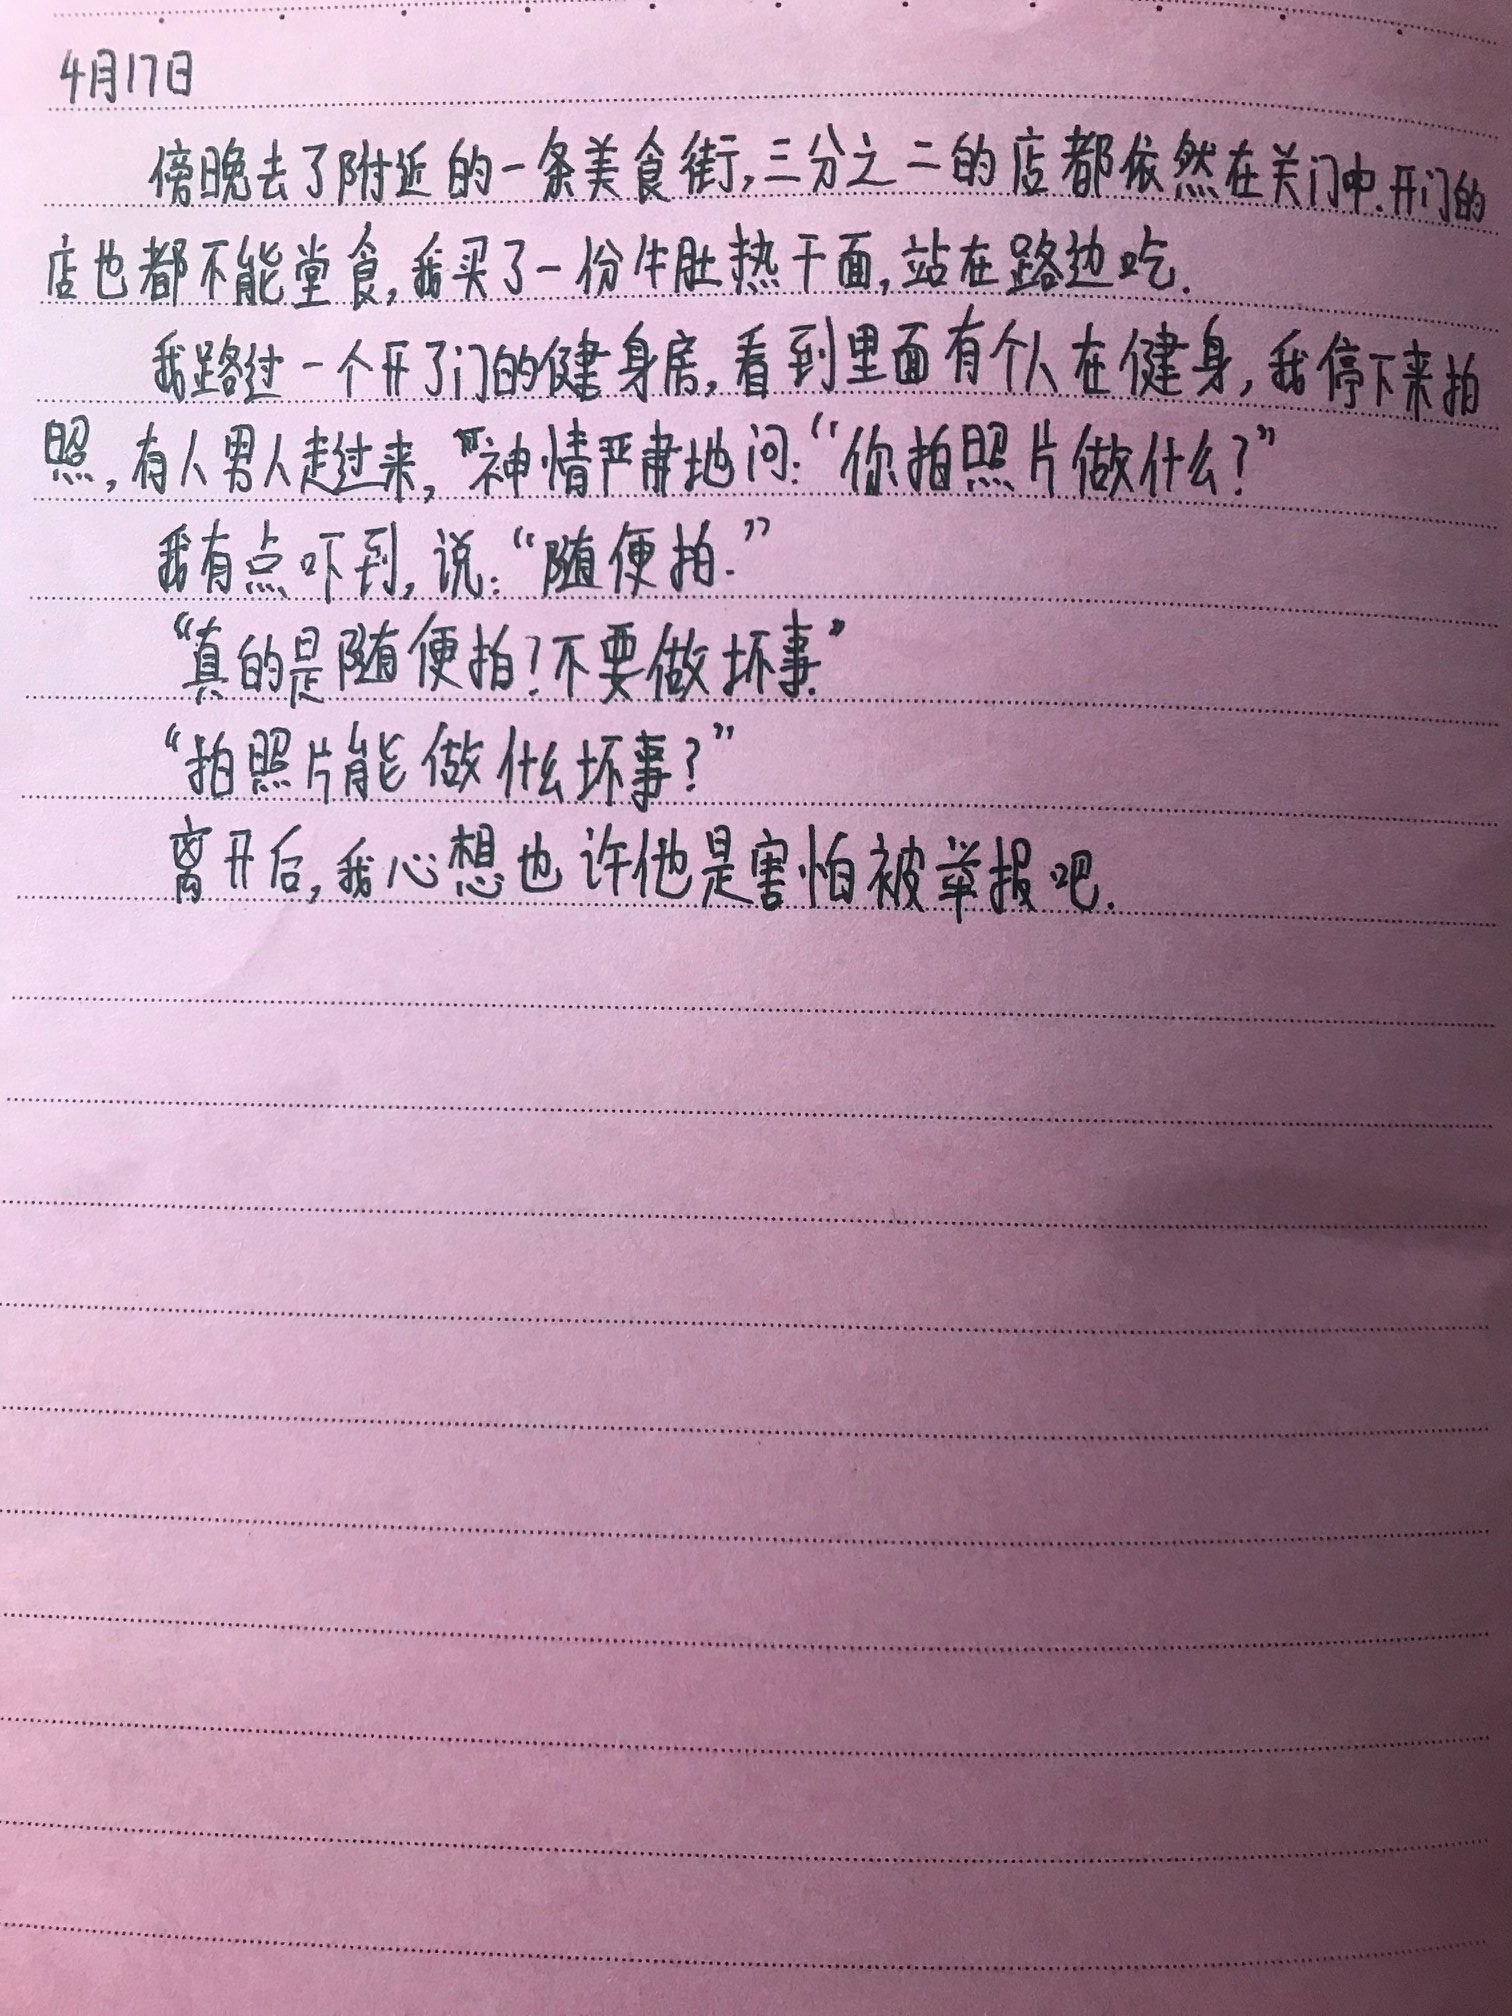 4月17日
傍晚去了附近的一条美食街,三分之二的店都依然在关门中.开门的
店也都不能堂食,我买了一份牛肚热干面,站在路边吃.
我路过一个开了门的健身房,看到里面有个人在健身,我停下来拍
照,有人男人走过来,神情严肃地问:“你拍照片做什么?”
我有点吓到,说:“随便拍.”
“真的是随便拍?不要做坏事.”
“拍照片能做什么坏事?”
离开后,我心想也许他是害怕被举报吧.